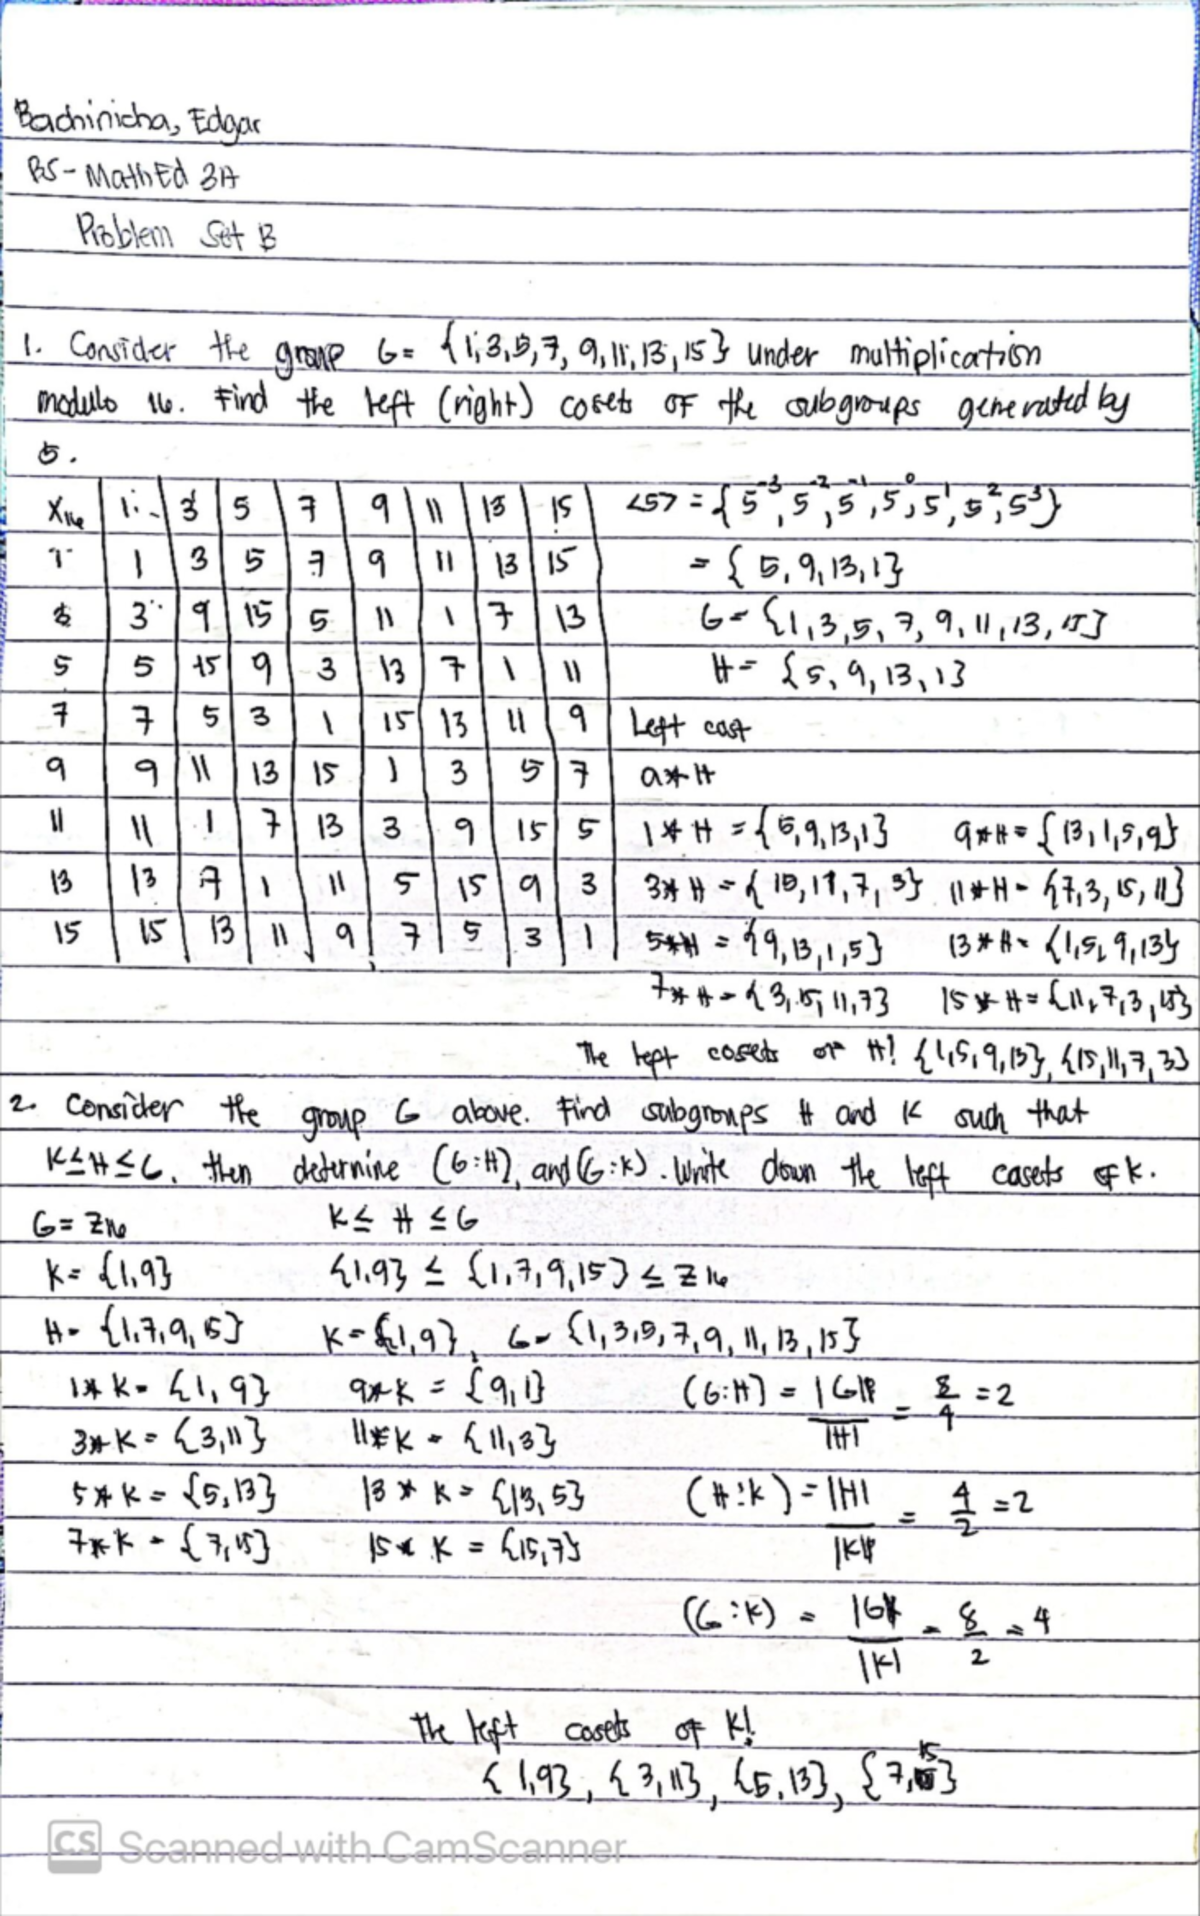 Bachinicha, Edgar
BS-MathEd 3A
Problem Set B
1. Consider the group G = {1,3,5,7,9,11,13,15} under multiplication
modulo 16. Find the left (right) cosets of the subgroups generated by
5.
X16 1 3 5 7 9 11 13 15
1 1 3 5 7 9 11 13 15
3 3 9 15 5 11 1 7 13
5 5 15 9 3 13 7 1 11
7 7 5 3 1 15 13 11 9
9 9 11 13 15 1 3 5 7
11 11 1 7 13 3 9 15 5
13 13 7 1 11 5 15 9 3
15 15 13 11 9 7 5 3 1
<5> = {5^-3, 5^-2, 5^-1, 5^0, 5^1, 5^2, 5^3}
= {5,9,13,1}
G = {1,3,5,7,9,11,13,15}
H = {5,9,13,1}
Left cost
a*H
1*H = {5,9,13,1} 9*H = {13,1,5,9}
3*H = {15,11,7,3} 11*H = {7,3,15,11}
5*H = {9,13,1,5} 13*H = {1,5,9,13}
7*H = {3,15,11,7} 15*H = {11,7,3,15}
The left cosets of H: {1,5,9,13}, {15,11,7,3}
2. Consider the group G above. Find subgroups H and K such that
K≤H≤G, then determine (G:H), and (G:K). Write down the left casets of K.
G = Z16 K ≤ H ≤ G
K = {1,9} {1,9} ≤ {1,7,9,15} ≤ Z16
H = {1,7,9,15} K = {1,9}, G = {1,3,5,7,9,11,13,15}
1*K = {1,9} 9*K = {9,1} (G:H) = |G|/|H| = 8/4 = 2
3*K = {3,11} 11*K = {11,3}
5*K = {5,13} 13*K = {13,5} (H:K) = |H|/|K| = 4/2 = 2
7*K = {7,15} 15*K = {15,7}
(G:K) = |G|/|K| = 8/2 = 4
The left cosets of K:
{1,9}, {3,11}, {5,13}, {7,15}
CS Scanned with CamScanner